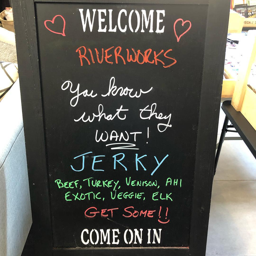 WELCOME
RIVERWORKS
You know
what they
WANT!
JERKY
BEEF, TURKEY, VENISON, AHI
EXOTIC, VEGGIE, ELK
GET SOME!!
COME ON IN